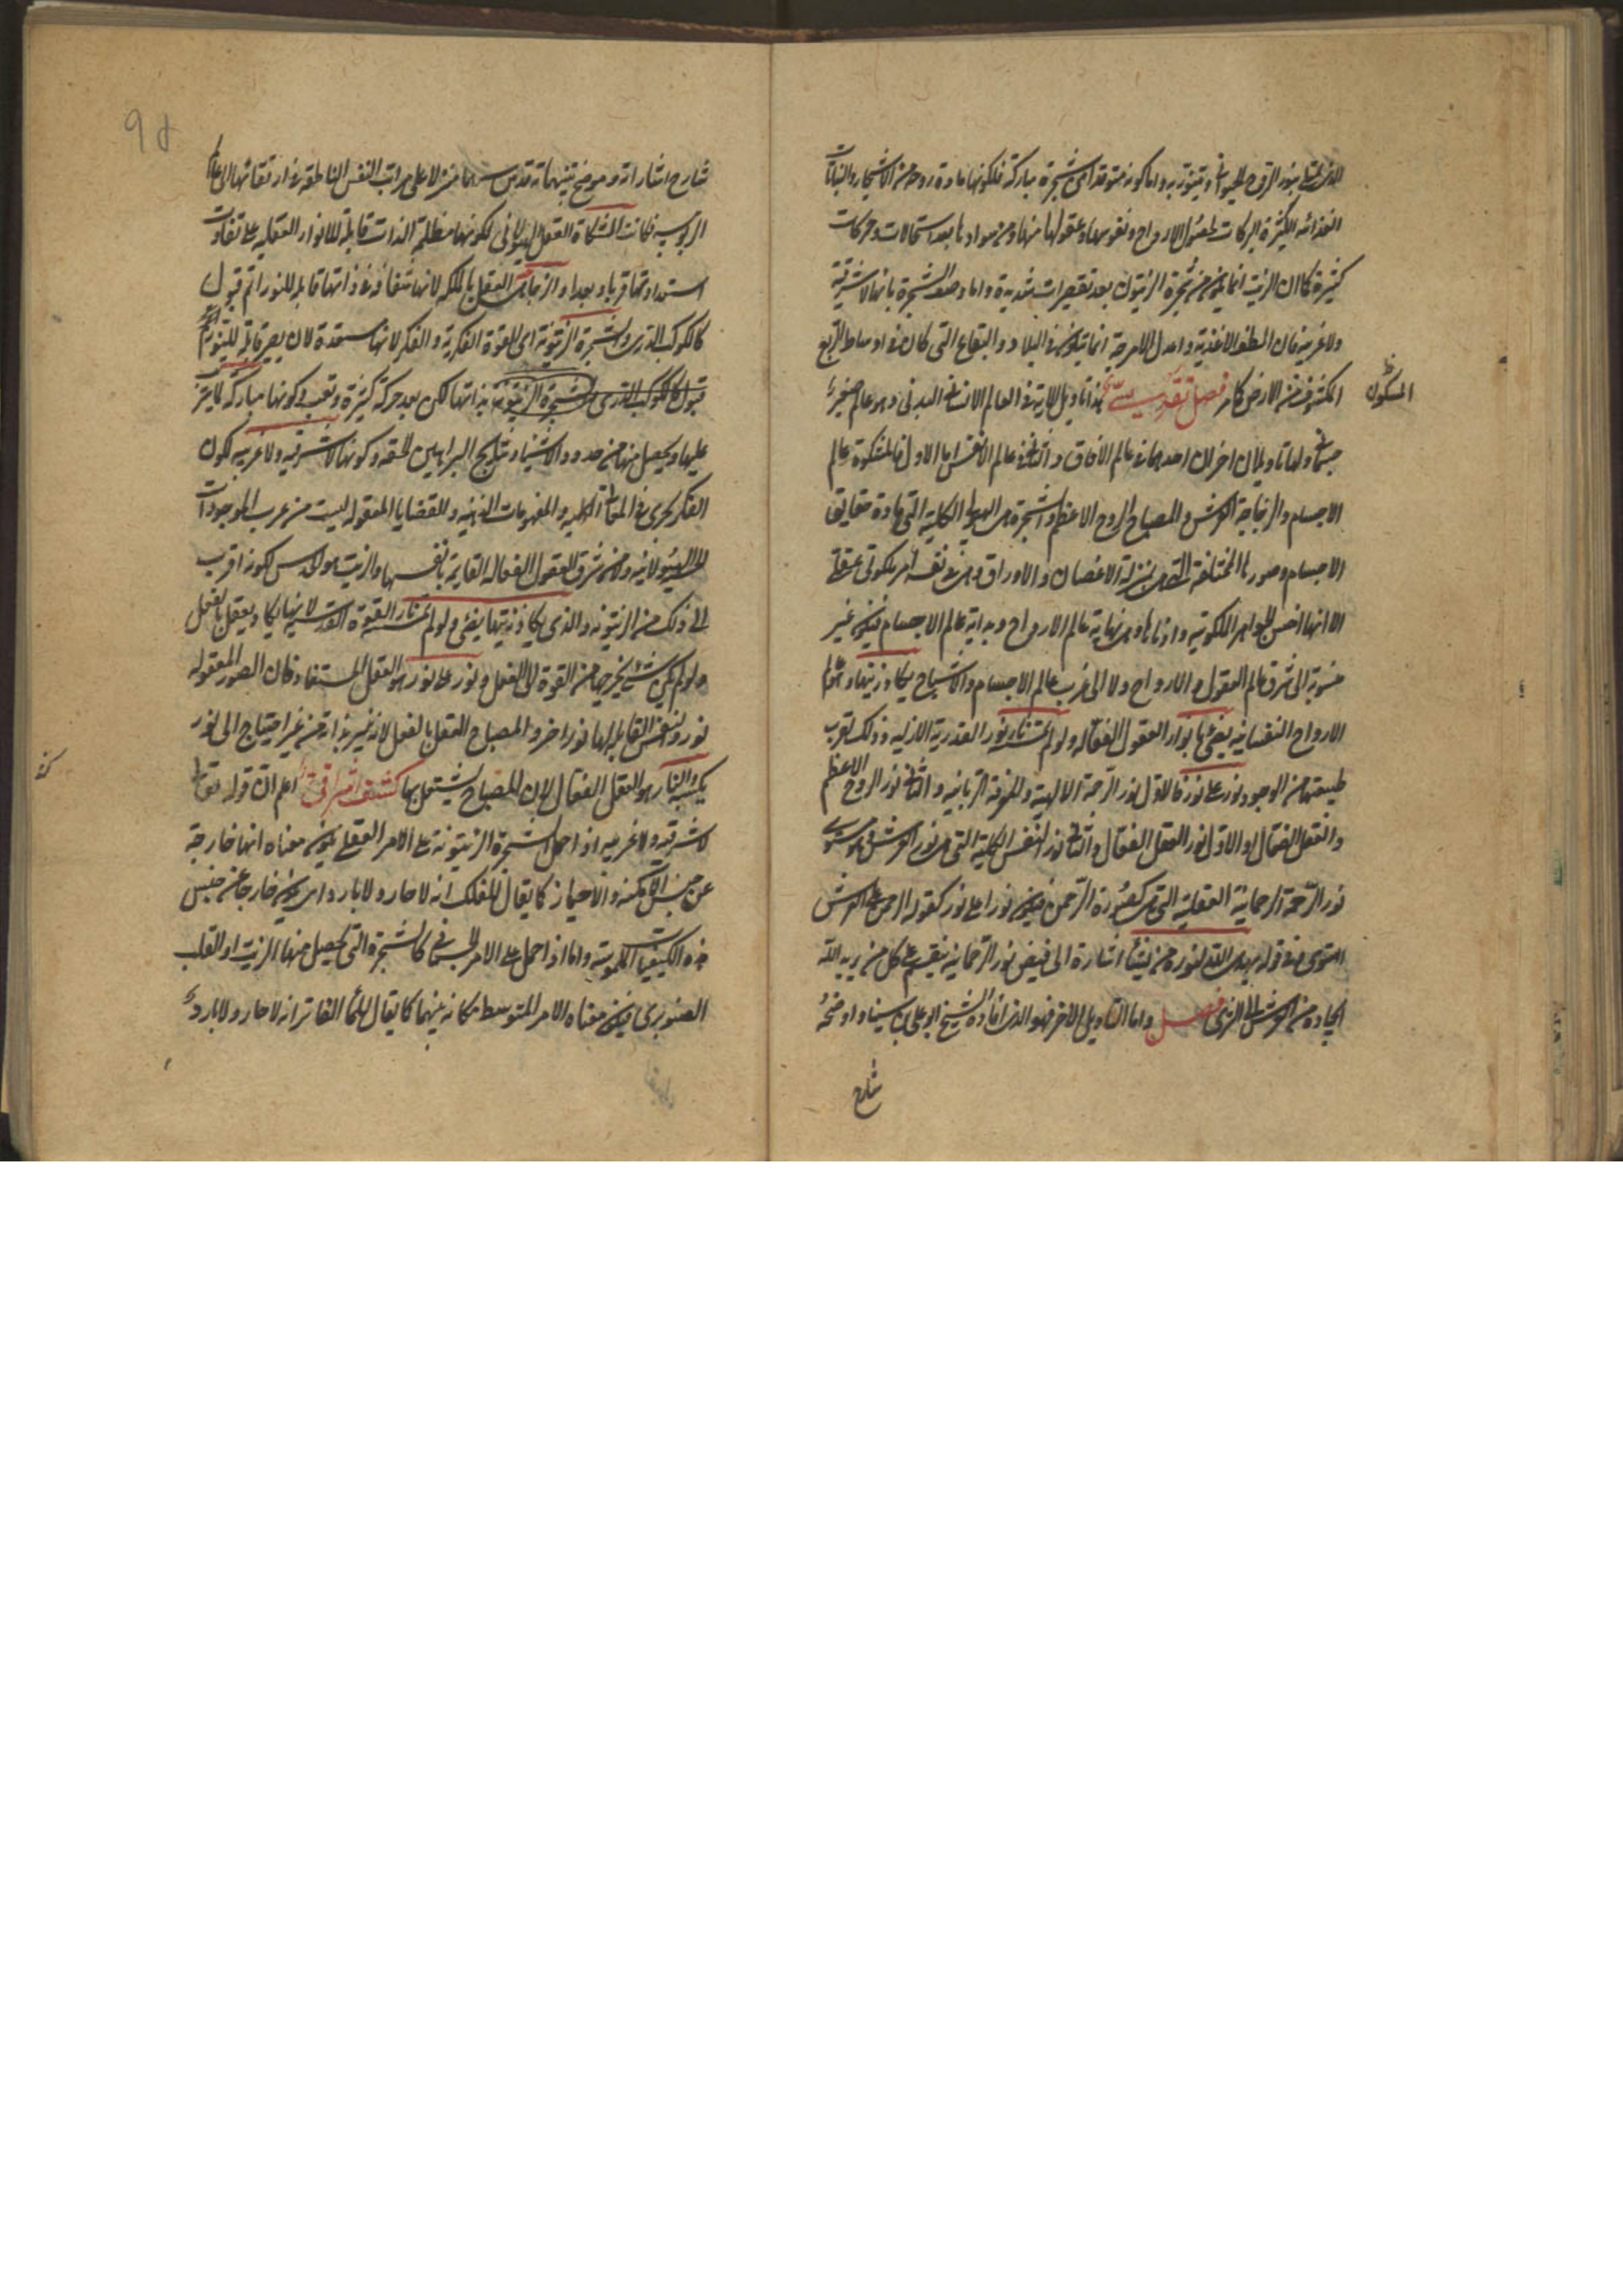 الذي يتلألأ بنور الروح الحيواني ويتنور به واما كونه متوقدا من شجرة مباركة فلكونها مادة روحه من الاشجار والنباتات
الغذائيه الكثيرة البركات لحصول الارواح ونفوسها وعقولها منها ومن موادها بعد استحالات وحركات
كثيرة كما ان الزيت انما يكون من شجرة الزيتون بعد تعصيرات شديدة واما وصف الشجرة بانها لا شرقية
ولا غربية فان الطف الاغذية واعدل الامزجة انما يتكون في البلاد والبقاع التي كان في اوساط الربع
المسكون
المكشوف من الارض كما مر فصل تقديسي هذا تأويل الاية في العالم الانساني البدني وهو عالم صغير
جسماني ولها تأويلان اخران احدهما في عالم الافاق والثاني في عالم الانفس اما الاول فالمشكوة عالم
الاجسام والزجاجة العرش والمصباح الروح الاعظم والشجرة هي الهيولى الكلية التي مادة حقايق
الاجسام وصورها المختلفة التي هي بمنزلة الاغصان والاوراق وهي في نفسه امر ملكوتي عقلي
الا انها اخس الجواهر الملكوتيه وادناها وهي نهاية عالم الارواح وبداية عالم الاجسام فيكون غير
منسوبة الى شرق عالم العقول والارواح ولا الى غرب عالم الاجسام والاشباح يكاد زيتها وهو عالم
الارواح النفسانيه يضئ بانوار العقول الفعاله ولو لم تمسسه نار نور القدرية الازليه وذلك لقرب
طبيعتها من الوجود نور على نور فالاول نور الرحمة الالهية والمعرفة الربانيه والثاني نور الروح الاعظم
والعقل الفعال او الاول نور العقل الفعال والثاني نور النفس الكلية التي هي نور العرش
نور الرحمة الرحمانية العقلية التي هي كصورة الرحمن فيكون نورا على نور كقوله الرحمن على العرش
استوى وفي قوله يهدي الله لنوره من يشاء اشارة الى فيض نور الرحمانيه ينقسم على كل من يريد الله
ايجاده من العرش الى الثرى فصل واما التاويل الاخر فهو الذي افاده الشيخ ابو علي بن سينا واوضحه
شارح
98
شارح اشاراته وموضح تنبيهاته قدس سرهما منزلا على مراتب النفس الناطقه في ارتقائها الى عالم
الربوبيه فكانت المشكاة العقل الهيولاني لكونها مظلمة الذات قابلة للانوار العقليه على تفاوت
استعداداتها قربا وبعدا والزجاجة العقل بالملكه لانها شفافة في ذاتها قابله للنور اتم قبول
كالكوكب الدري والشجرة الزيتونة هي القوة الفكرية والفكر لانها مستعدة لان يصير قابلة للنور
قبول كالكوكب الدري والشجرة الزيتونة بذاتها لكن بعد حركة كثيرة وتعب وكونها مباركه لما يترتب
عليها ويحصل منها من حدود الاشياء ونتايج البراهين الحقه وكونها لا شرقيه ولا غربيه لكون
الفكر يجري في المعاني الكليه والمفهومات الذهنيه والقضايا المعقوله ليست من غرب الموجودات
الهيولانيه ولا من شرق العقول الفعاله القايمة بانفسها والزيت هو الحدس لكونه اقرب
الى ذلك من الزيتونه والذي يكاد زيتها يضئ ولو لم تمسسه نار القوة القدسية لانها يكاد يعقل بالفعل
ولو لم يكن شئ يخرجها من القوة الى الفعل ونور على نور هو العقل المستفاد فان الصور المعقوله
نور والنفس القابله لها نور اخر والمصباح العقل بالفعل لانه نير بذاته من غير احتياج الى نور
يكتسبه والنار هو العقل الفعال لان المصباح يشتعل بها كشف اشراقي اعلم ان قوله تعالى
لا شرقيه ولا غربيه اذا حمل الشجرة الزيتونة على الامر العقلي يكون معناه انها خارجة
عن جنس الامكنه والاحياز كما يقال للفلك انه لا حار ولا بارد اي يكون خارجا عن جنس
هذه الكيفيات الملموسة واما اذا حمل على الامر الجسماني كالشجرة التي يحصل منها الزيت او القلب
الصنوبري فيكون معناه الامر المتوسط مكانه بينهما كما يقال للماء الفاتر انه لا حار ولا بارد